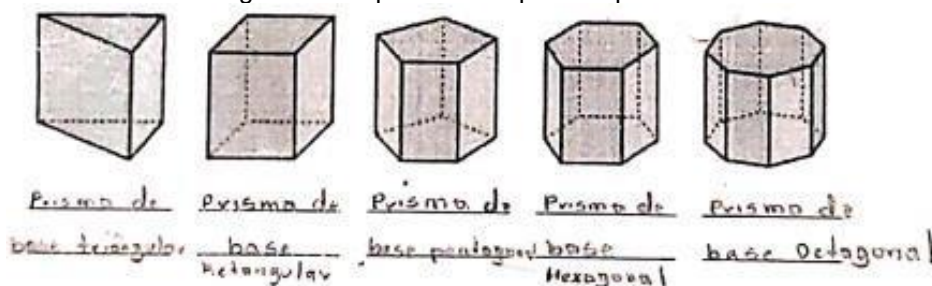 Prisma de
base triângular
Prisma de
base
Retangular
Prisma de
base pentagonal
Prisma de
base
Hexagonal
Prisma de
base Octagonal